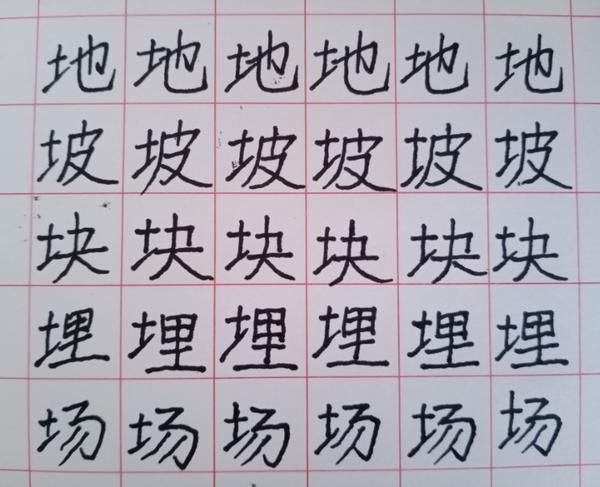 地地地地地地
坡坡坡坡坡坡
块块块块块块
埋埋埋埋埋埋
场场场场场场